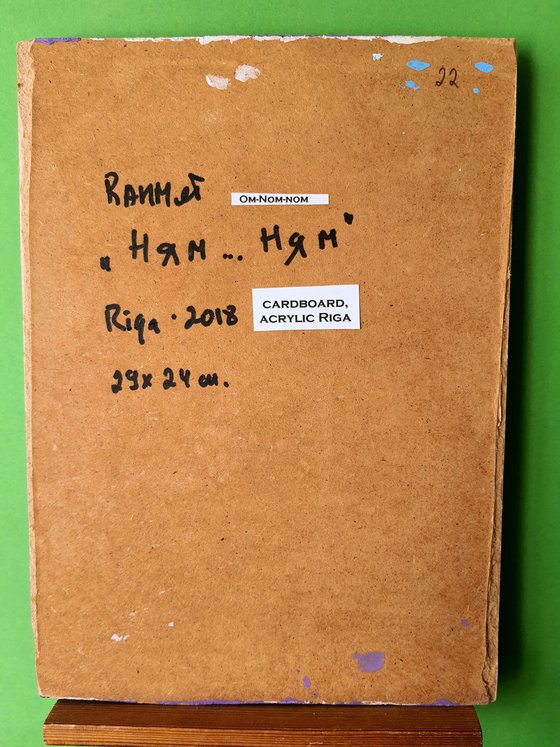 22
Om-Nom-nom
„Ням... Ням"
Riga · 2018
CARDBOARD,
ACRYLIC RIGA
29x24 см.